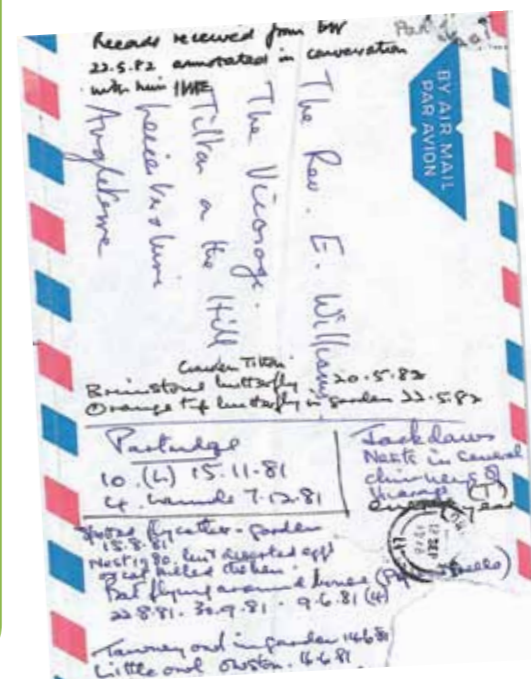 Records received from EW
22.5.82 annotated in conversation
with him
Part
BY AIR MAIL
PAR AVION
The Rev. E. Williams.
The Vicarage.
Tilton on the Hill
Leicestershire
Angleterre
Garden Tilton
Brimstone butterfly 20.5.82
Orange tip butterfly in garden 22.5.82
Partridge
10. (L) 15.11.81
4. Launde 7.12.81
Jackdaws
Nests in
chimneys of
Vicarage (T)
every year
Spotted flycatcher - garden
15.8.81
Nest 1980 but deserted eggs
as cat killed the hen.
Bat flying around house
22.8.81. 30.9.81 - 9.6.81 (4)
Tawney owl in garden 14.6.81
Little owl Owston. 16.6.81
SEP